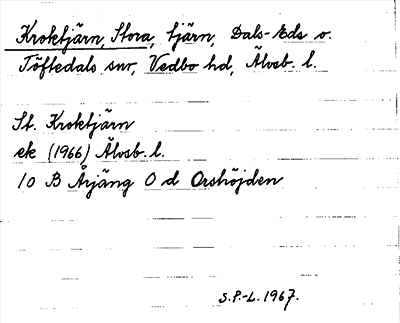 Kroktjärn, Stora, tjärn, Dals-Eds o.
Töftedals snr, Vedbo hd, Älvsb. l.
St. Kroktjärn
ek (1966) Älvsb. l.
10 B Årjäng 0 d Orshöjden
S.P.-L. 1967.